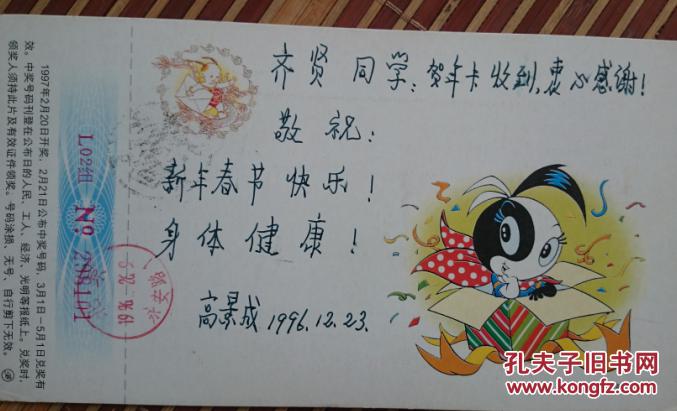 齐贤 同学：贺年卡收到，衷心感谢！
敬 祝：
新年春节 快乐！
身体 健 康！
高景成 1996.12.23.
1997年2月20日开奖，2月21日公布中奖号码，3月1日—5月1日兑奖有
效。中奖号码刊登在公布日的人民、工人、经济、光明等报纸上。兑奖时，
领奖人须持此片及有效证件领奖。号码涂损、无号、自行剪下无效。
L02组
No.
孔夫子旧书网
www.kongfz.com